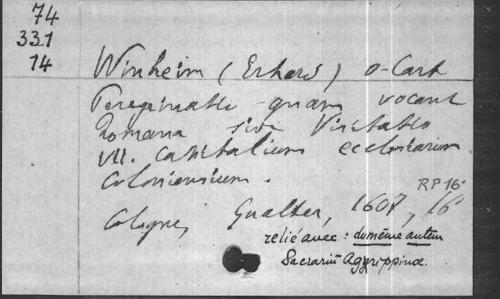 74
331
14
Winheim (Erhard) o. Cart
Peregrinatio quam vocant
Romana sive Visitatio
VII. capitalium ecclesiarum
Coloniensium.
RP 16°
Cologne, Gualter, 1607, 16°
relié avec : du même auteur
Sacrariū Agrippinæ.